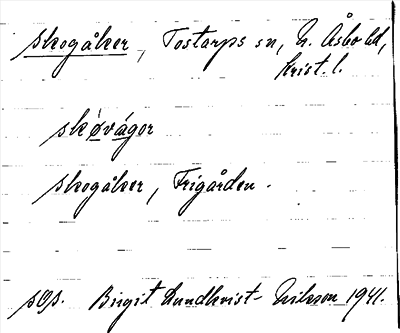 skogåker, Tostarps sn, N. Åsbo hd,
Krist. l.
skǿvágor
skogåker, Frigården.
sgs. Birgit Lundkvist-Nilsson 1941.